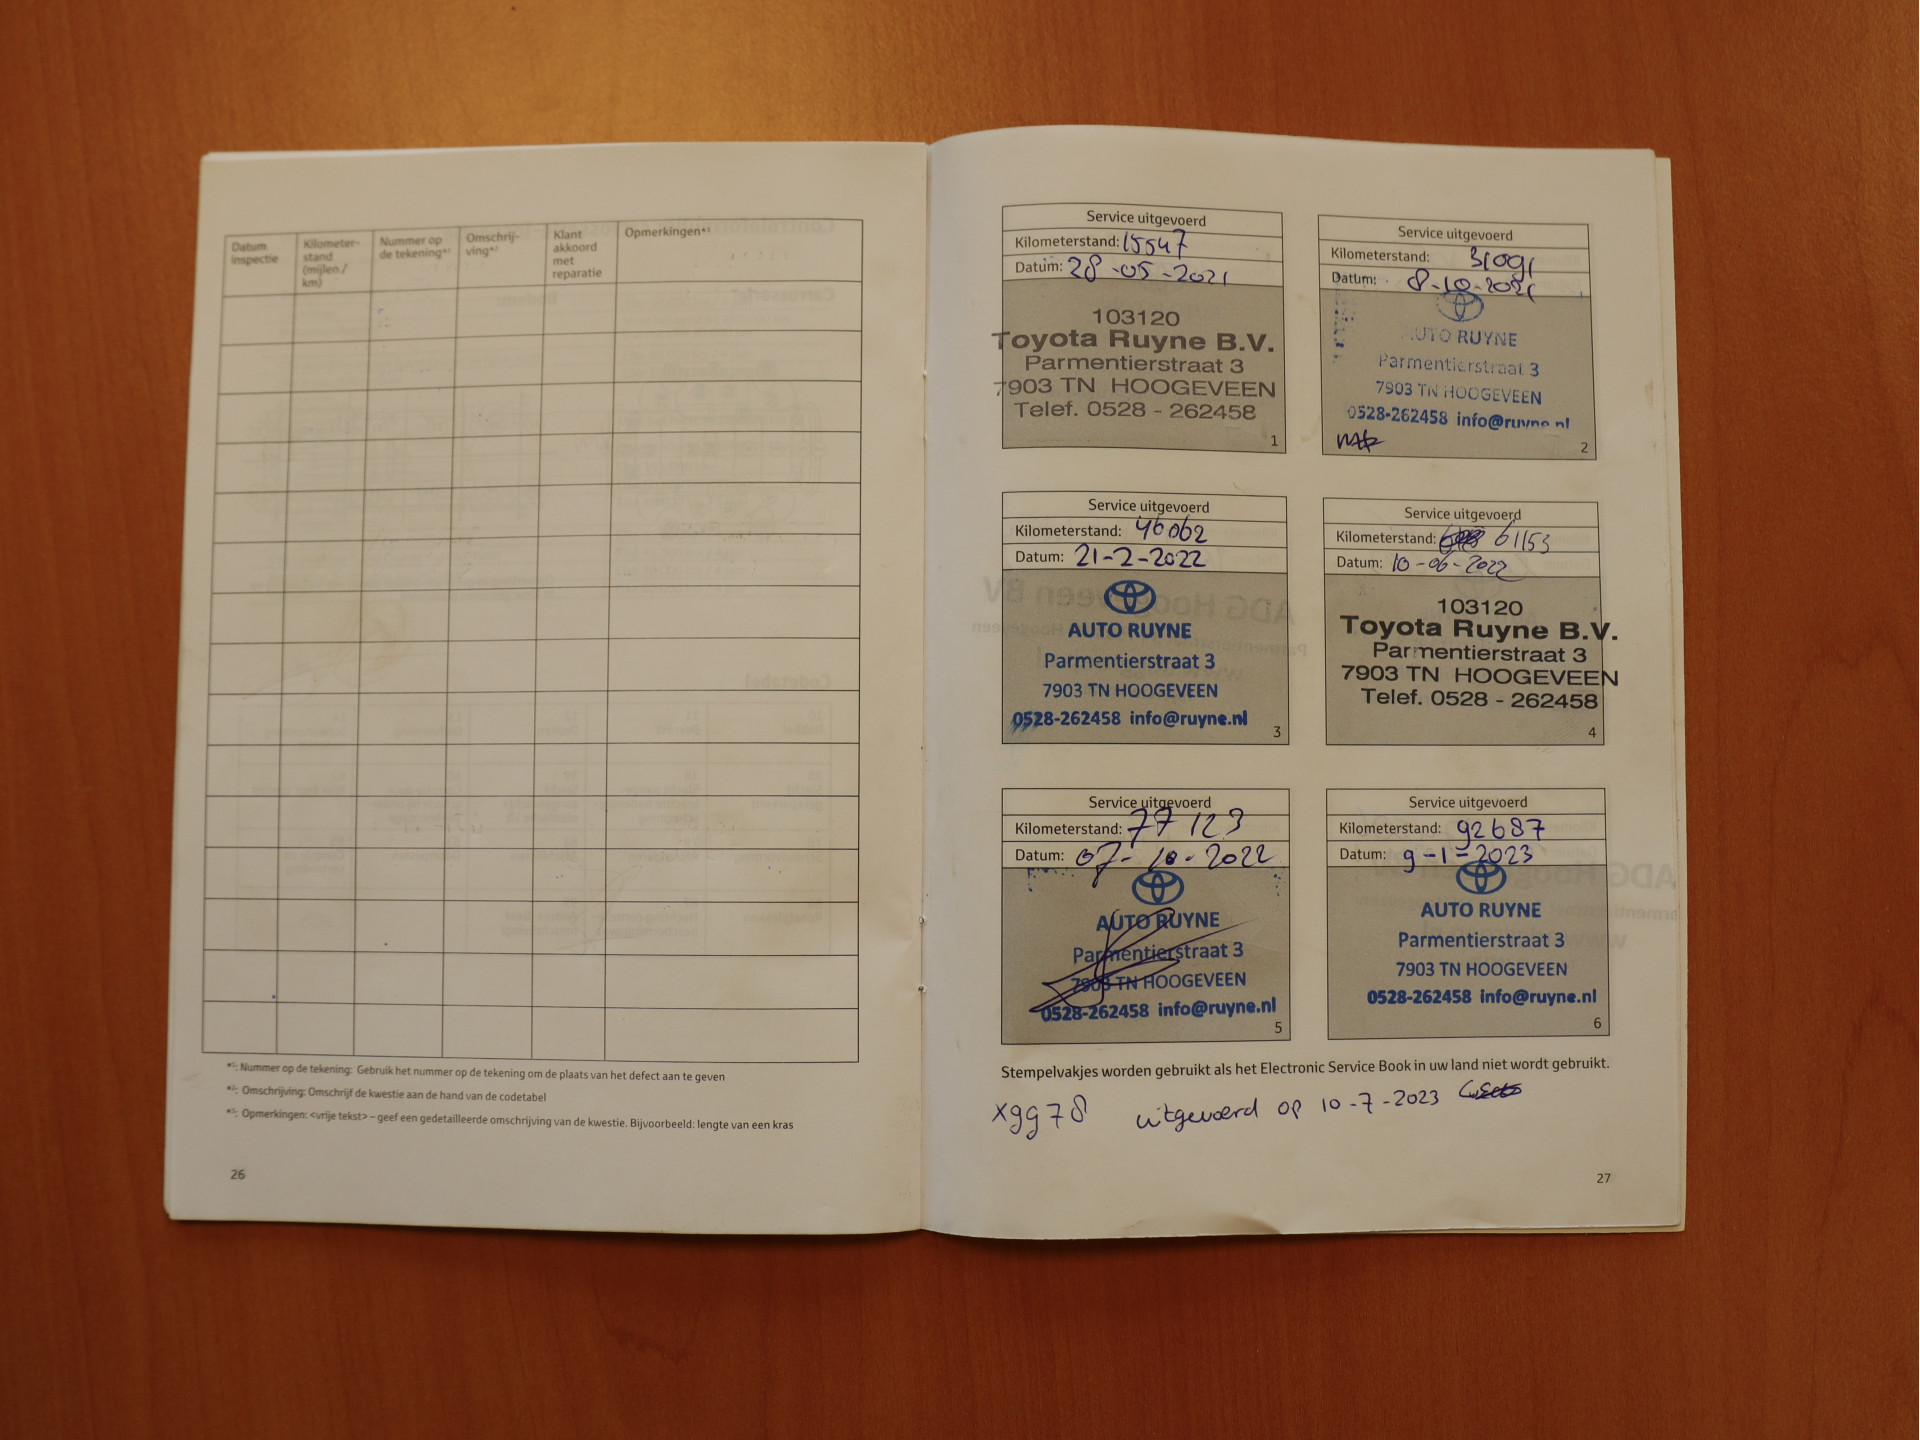 Datum inspectie
Kilometer-stand (mijlen / km)
Nummer op de tekening*¹
Omschrij-ving*²
Klant akkoord met reparatie
Opmerkingen*³
*¹: Nummer op de tekening: Gebruik het nummer op de tekening om de plaats van het defect aan te geven
*²: Omschrijving: Omschrijf de kwestie aan de hand van de codetabel
*³: Opmerkingen: <vrije tekst> – geef een gedetailleerde omschrijving van de kwestie. Bijvoorbeeld: lengte van een kras
26
Service uitgevoerd
Kilometerstand: 15547
Datum: 28-05-2021
103120
Toyota Ruyne B.V.
Parmentierstraat 3
7903 TN HOOGEVEEN
Telef. 0528 - 262458
1
Service uitgevoerd
Kilometerstand: 31091
Datum: 8-10-2021
AUTO RUYNE
Parmentierstraat 3
7903 TN HOOGEVEEN
0528-262458 info@ruyne.nl
2
Service uitgevoerd
Kilometerstand: 46062
Datum: 21-2-2022
AUTO RUYNE
Parmentierstraat 3
7903 TN HOOGEVEEN
0528-262458 info@ruyne.nl
3
Service uitgevoerd
Kilometerstand: 61153
Datum: 10-06-2022
103120
Toyota Ruyne B.V.
Parmentierstraat 3
7903 TN HOOGEVEEN
Telef. 0528 - 262458
4
Service uitgevoerd
Kilometerstand: 77123
Datum: 07-10-2022
AUTO RUYNE
Parmentierstraat 3
7903 TN HOOGEVEEN
0528-262458 info@ruyne.nl
5
Service uitgevoerd
Kilometerstand: 92687
Datum: 9-1-2023
AUTO RUYNE
Parmentierstraat 3
7903 TN HOOGEVEEN
0528-262458 info@ruyne.nl
6
Stempelvakjes worden gebruikt als het Electronic Service Book in uw land niet wordt gebruikt.
xgg78 uitgevoerd op 10-7-2023
27